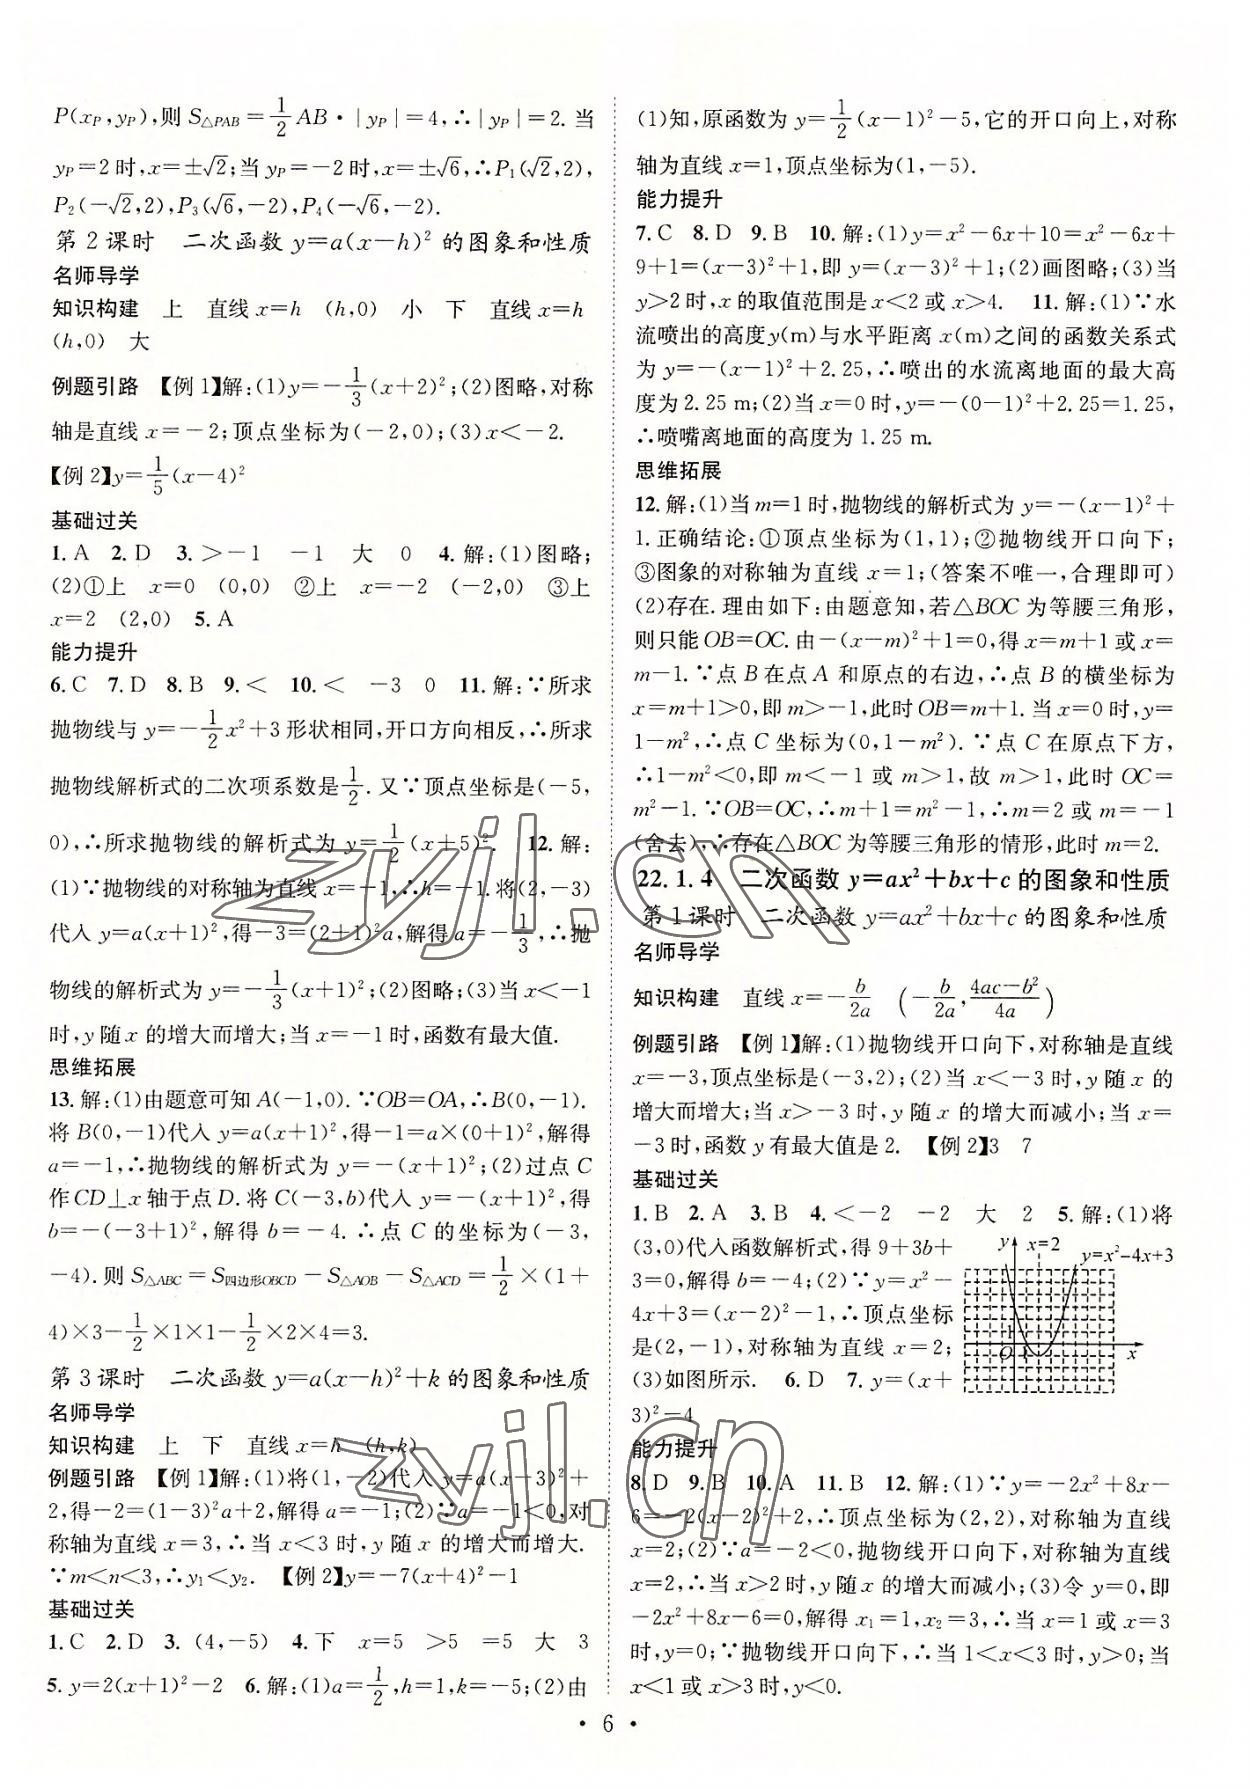 P(x_P,y_P),则 S△PAB=1/2 AB·|y_P|=4,∴|y_P|=2. 当
y_P=2时,x=±√2;当 y_P=-2时,x=±√6,∴P₁(√2,2),
P₂(-√2,2),P₃(√6,-2),P₄(-√6,-2).
第2课时 二次函数 y=a(x-h)² 的图象和性质
名师导学
知识构建 上 直线 x=h (h,0) 小 下 直线 x=h
(h,0) 大
例题引路 【例1】解:(1)y=-1/3(x+2)²;(2)图略,对称
轴是直线 x=-2;顶点坐标为(-2,0);(3)x<-2.
【例2】y=1/5(x-4)²
基础过关
1.A 2.D 3.>-1 -1 大 0 4.解:(1)图略;
(2)①上 x=0 (0,0) ②上 x=-2 (-2,0) ③上
x=2 (2,0) 5.A
能力提升
6.C 7.D 8.B 9.< 10.< -3 0 11.解:∵所求
抛物线与 y=-1/2x²+3形状相同,开口方向相反,∴所求
抛物线解析式的二次项系数是1/2.又∵顶点坐标是(-5,
0),∴所求抛物线的解析式为 y=1/2(x+5)². 12.解:
(1)∵抛物线的对称轴为直线 x=-1,∴h=-1.将(2,-3)
代入 y=a(x+1)²,得-3=(2+1)²a,解得 a=-1/3,∴抛
物线的解析式为 y=-1/3(x+1)²;(2)图略;(3)当 x<-1
时,y 随 x 的增大而增大;当 x=-1时,函数有最大值.
思维拓展
13.解:(1)由题意可知 A(-1,0).∵OB=OA,∴B(0,-1).
将 B(0,-1)代入 y=a(x+1)²,得-1=a×(0+1)²,解得
a=-1,∴抛物线的解析式为 y=-(x+1)²;(2)过点 C
作 CD⊥x 轴于点 D.将 C(-3,b)代入 y=-(x+1)²,得
b=-(-3+1)²,解得 b=-4.∴点 C 的坐标为(-3,
-4).则 S△ABC=S四边形OBCD-S△AOB-S△ACD=1/2×(1+
4)×3-1/2×1×1-1/2×2×4=3.
第3课时 二次函数 y=a(x-h)²+k 的图象和性质
名师导学
知识构建 上 下 直线 x=h (h,k)
例题引路 【例1】解:(1)将(1,-2)代入 y=a(x-3)²+
2,得-2=(1-3)²a+2,解得 a=-1;(2)∵a=-1<0,对
称轴为直线 x=3,∴当 x<3时,y 随 x 的增大而增大.
∵m<n<3,∴y₁<y₂. 【例2】y=-7(x+4)²-1
基础过关
1.C 2.D 3.(4,-5) 4.下 x=5 >5 =5 大 3
5.y=2(x+1)²-2 6.解:(1)a=1/2,h=1,k=-5;(2)由
(1)知,原函数为 y=1/2(x-1)²-5,它的开口向上,对称
轴为直线 x=1,顶点坐标为(1,-5).
能力提升
7.C 8.D 9.B 10.解:(1)y=x²-6x+10=x²-6x+
9+1=(x-3)²+1,即 y=(x-3)²+1;(2)画图略;(3)当
y>2时,x 的取值范围是 x<2或 x>4. 11.解:(1)∵水
流喷出的高度 y(m)与水平距离 x(m)之间的函数关系式
为 y=-(x-1)²+2.25,∴喷出的水流离地面的最大高
度为2.25 m;(2)当 x=0时,y=-(0-1)²+2.25=1.25,
∴喷嘴离地面的高度为1.25 m.
思维拓展
12.解:(1)当 m=1时,抛物线的解析式为 y=-(x-1)²+
1.正确结论:①顶点坐标为(1,1);②抛物线开口向下;
③图象的对称轴为直线 x=1;(答案不唯一,合理即可)
(2)存在.理由如下:由题意知,若△BOC 为等腰三角形,
则只能 OB=OC.由-(x-m)²+1=0,得 x=m+1或 x=
m-1.∵点 B 在点 A 和原点的右边,∴点 B 的横坐标为
x=m+1>0,即 m>-1,此时 OB=m+1. 当 x=0时,y=
1-m²,∴点 C 坐标为(0,1-m²).∵点 C 在原点下方,
∴1-m²<0,即 m<-1或 m>1,故 m>1,此时 OC=
m²-1.∵OB=OC,∴m+1=m²-1,∴m=2或 m=-1
(舍去),∴存在△BOC 为等腰三角形的情形,此时 m=2.
22.1.4 二次函数 y=ax²+bx+c 的图象和性质
第1课时 二次函数 y=ax²+bx+c 的图象和性质
名师导学
知识构建 直线 x=-b/2a (-b/2a,(4ac-b²)/4a)
例题引路 【例1】解:(1)抛物线开口向下,对称轴是直线
x=-3,顶点坐标是(-3,2);(2)当 x<-3时,y 随 x 的
增大而增大;当 x>-3时,y 随 x 的增大而减小;当 x=
-3时,函数 y 有最大值是2. 【例2】3 7
基础过关
1.B 2.A 3.B 4.<-2 -2 大 2 5.解:(1)将
(3,0)代入函数解析式,得9+3b+
3=0,解得 b=-4;(2)∵y=x²-
4x+3=(x-2)²-1,∴顶点坐标
是(2,-1),对称轴为直线 x=2;
(3)如图所示. 6.D 7.y=(x+
3)²-4
y x=2
y=x²-4x+3
1
O 1 x
能力提升
8.D 9.B 10.A 11.B 12.解:(1)∵y=-2x²+8x-
6=-2(x-2)²+2,∴顶点坐标为(2,2),对称轴为直线
x=2;(2)∵a=-2<0,抛物线开口向下,对称轴为直线
x=2,∴当 x>2时,y 随 x 的增大而减小;(3)令 y=0,即
-2x²+8x-6=0,解得 x₁=1,x₂=3,∴当 x=1或 x=3
时,y=0;∵抛物线开口向下,∴当1<x<3时,y>0;当
x<1或 x>3时,y<0.
· 6 ·
zyjl.cn
zyjl.cn